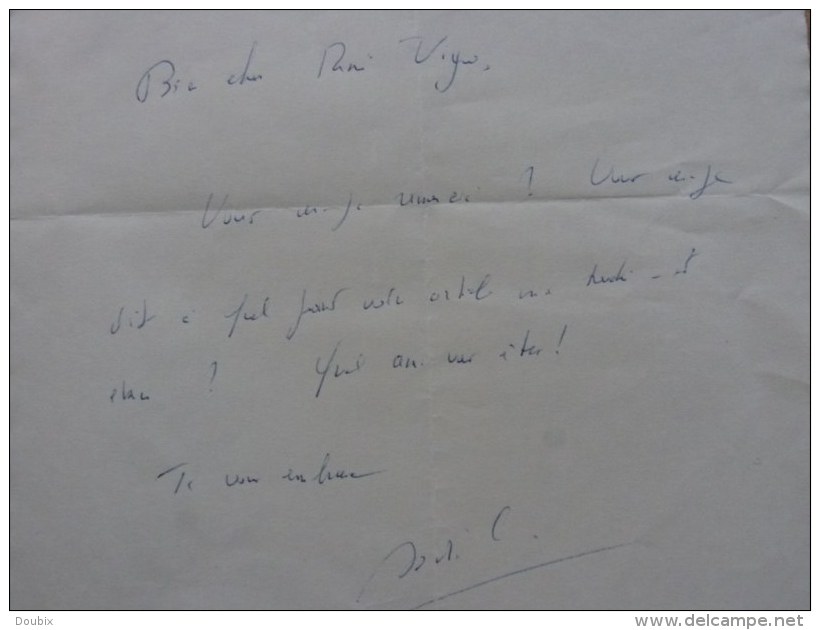 Bien cher René Vigo,
Vous ai-je remercié ? Vous ai-je
dit à quel point votre article m'a touché - et
ému ? Quel ami vous êtes !
Je vous embrasse
Doubix
www.delcampe.net